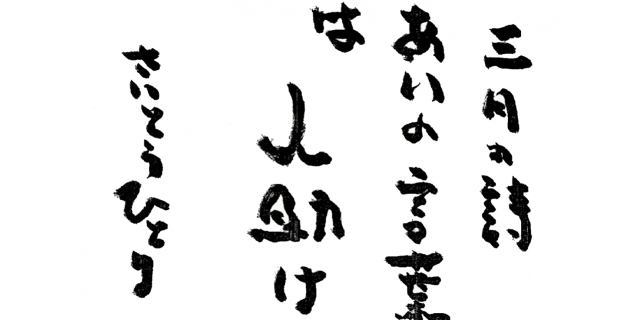 三月の詩
あいの言葉
は 人助け
さいとうひとり